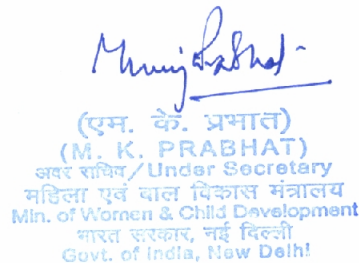 (एम. के. प्रभात)
(M. K. PRABHAT)
अवर सचिव/Under Secretary
महिला एवं बाल विकास मंत्रालय
Min. of Women & Child Development
भारत सरकार, नई दिल्ली
Govt. of India, New Delhi